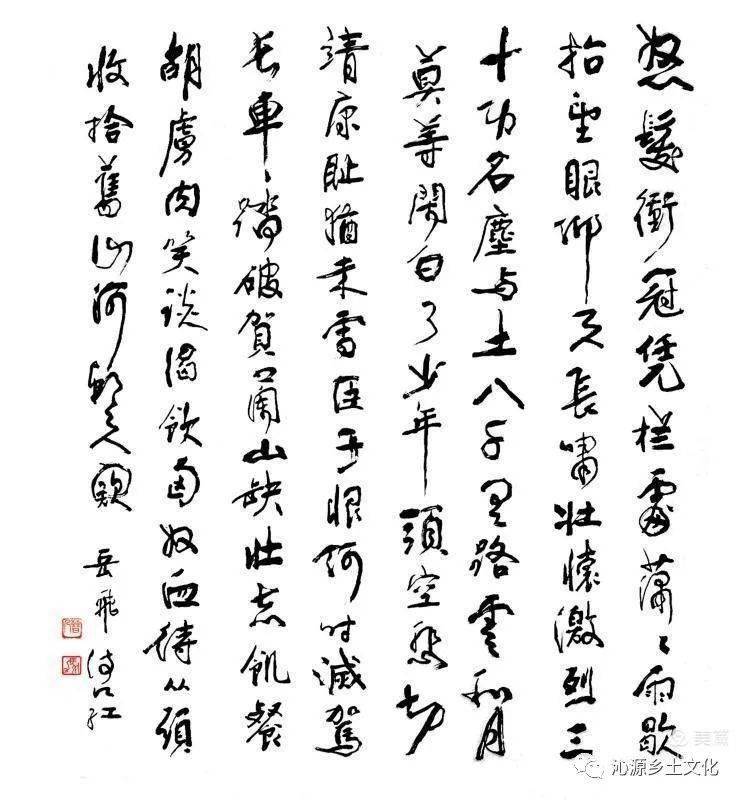 怒髮衝冠凭栏處蕭〻雨歇
抬望眼仰天長嘯壯懷激烈三
十功名塵与土八千里路雲和月
莫等閒白了少年頭空悲切
靖康耻猶未雪臣子恨何时滅駕
长車〻踏破賀蘭山缺壯志飢餐
胡虜肉笑談渴飲匈奴血待从頭
收拾舊山河朝天闕 岳飛满江红
美篇
沁源乡土文化